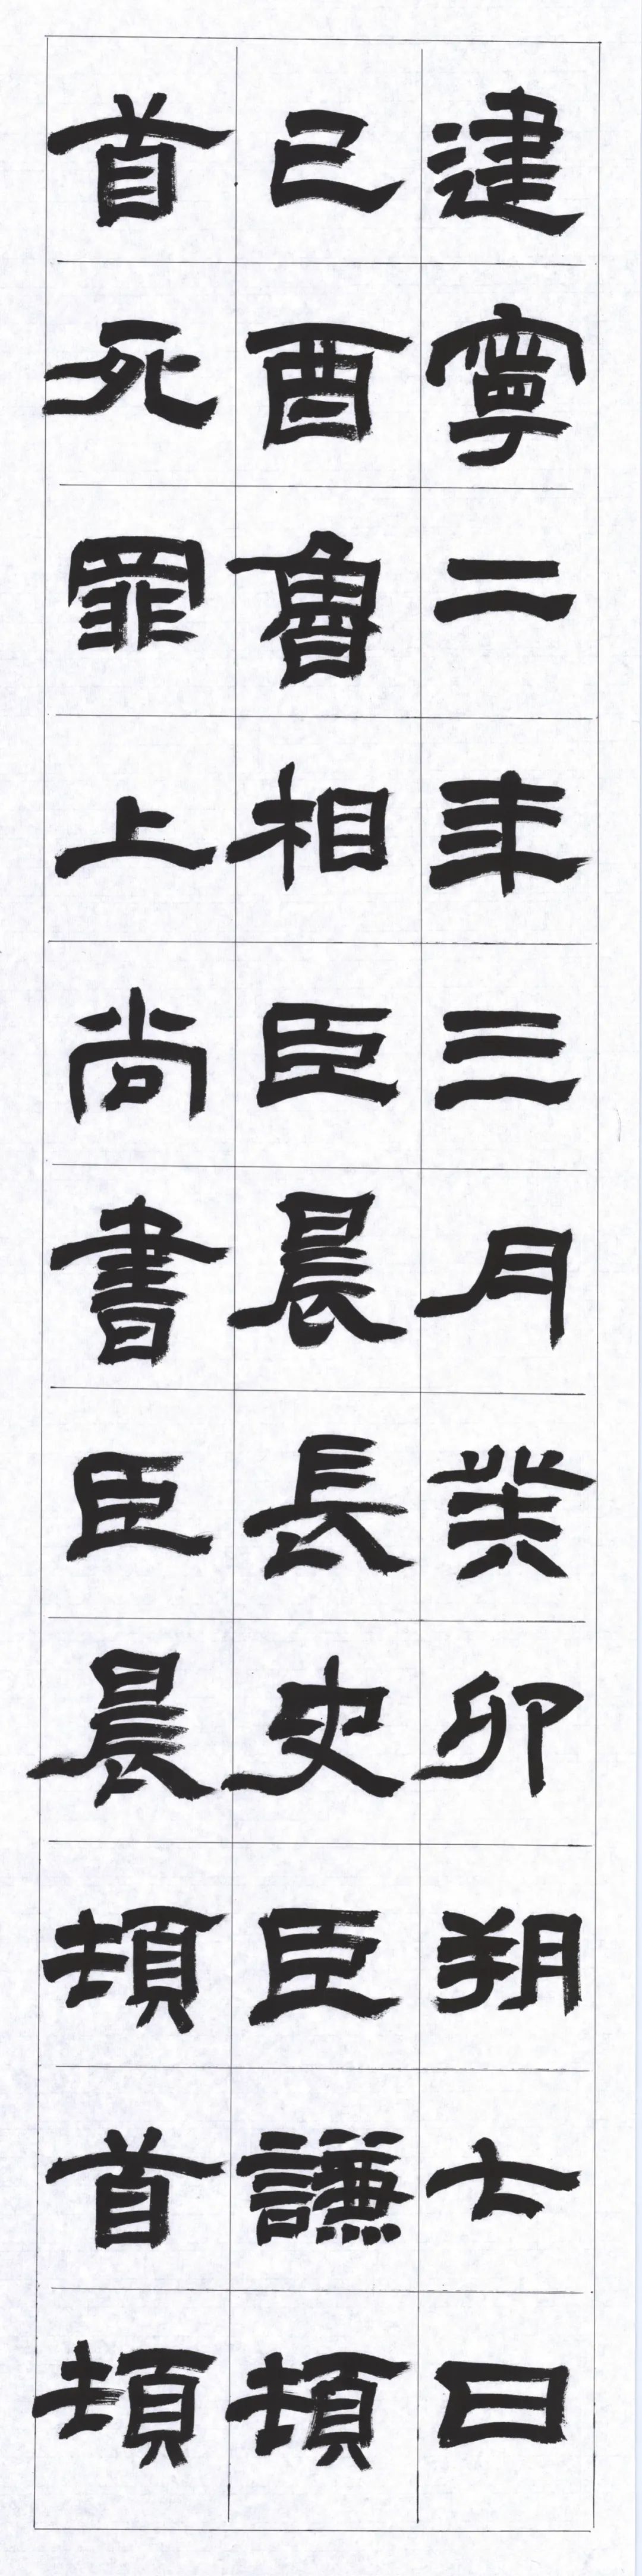 建寧二年三月癸卯朔七日
己酉魯相臣晨長史臣謙頓
首死罪上尚書臣晨頓首頓